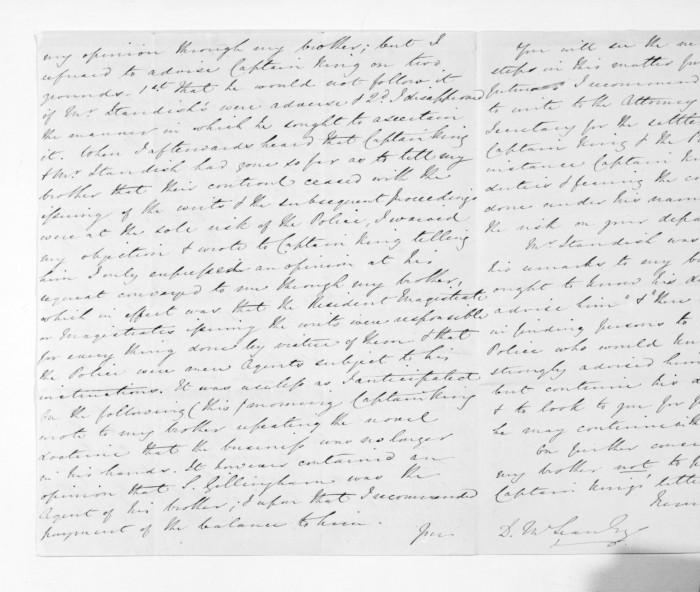 my opinion through my brother; but I
refused to advise Captain King on two
grounds. 1st that he would not follow it
if Mr. Standish's were adverse & 2d. I disapproved
the manner in which he sought to ascertain
it. When I afterwards heard that Captain King
& Mr. Standish had gone so far as to tell my
brother that their control ceased with the
issuing of the writs & the subsequent proceedings
were at the sole risk of the Police, I waived
my objection & wrote to Captain King telling
him I only expressed an opinion at his
request conveyed to me through my brother,
which in effect was that the Resident Magistrate
or Magistrates issuing the writs were responsible
for every thing done by virtue of them & that
the Police were mere Agents subject to his
instructions. It was useless as I anticipated
On the following (this) morning Captain King
wrote to my brother repeating the novel
doctrine that the business was no longer
in his hands. It however contained an
opinion that S. Gillingham was the
Agent of his brother; & upon that I recommended
payment of the balance to him.
You
You will see the
steps in this matter
I recommend
to write to the Attorney
Secretary for the
Captain King & the
instance Captain
duties & fearing the
done under his name
the risk on your
Mr. Standish was
his remarks to my
ought to know his
advise him" &
in finding persons to
Police who would
strongly advised him
but continue his
& to look to you for
he may continue
On further
my brother not to
Captain King's letter
D. McLean Esq